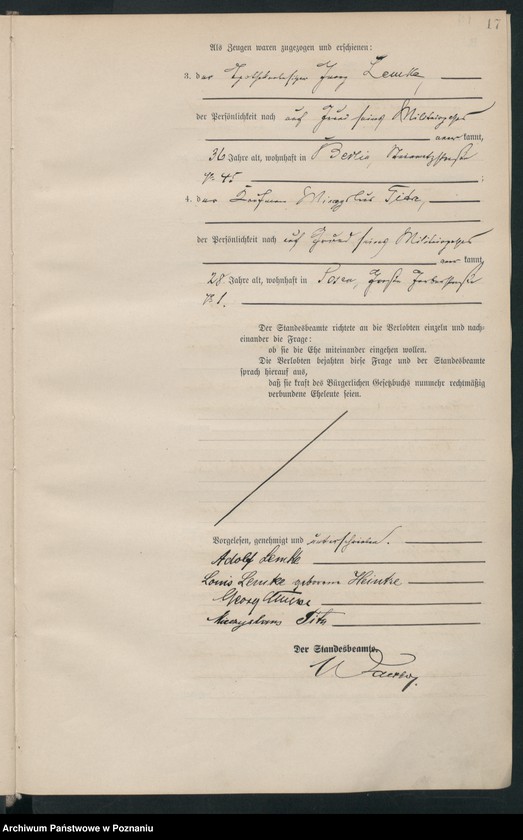 17
Als Zeugen waren zugezogen und erschienen:
3. der Apothekenbesitzer Georg Lemke,
der Persönlichkeit nach auf Grund seines Militärpasses
kannt,
36 Jahre alt, wohnhaft in Berlin,
No 45
4. der Kaufmann Miecyslaus Titz,
der Persönlichkeit nach auf Grund seines Militärpasses
kannt,
28 Jahre alt, wohnhaft in Posen, Große Gerberstraße
No 1.
Der Standesbeamte richtete an die Verlobten einzeln und nach-
einander die Frage:
ob sie die Ehe miteinander eingehen wollen.
Die Verlobten bejahten diese Frage und der Standesbeamte
sprach hierauf aus,
daß sie kraft des Bürgerlichen Gesetzbuchs nunmehr rechtmäßig
verbundene Eheleute seien.
Vorgelesen, genehmigt und unterschrieben.
Adolf Lemke
Lemke geborene Heintze
Georg
Titz
Der Standesbeamte.
Archiwum Państwowe w Poznaniu